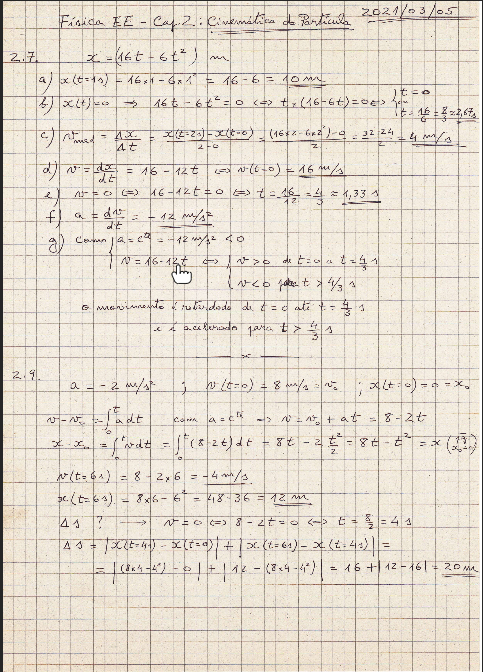 2021/03/05
Física EE - Cap. 2: Cinemática da Partícula
2.7. x = (16t - 6t²) m
a) x(t=1s) = 16×1 - 6×1² = 16 - 6 = 10 m
b) x(t)=0 ⇒ 16t - 6t² = 0 ⇔ t×(16-6t)=0 ⇔ { t=0 ou t = 16/6 = 8/3 = 2,67s
c) v_med = Δx/Δt = (x(t=2s) - x(t=0))/(2-0) = ((16×2 - 6×2²) - 0)/2 = (32-24)/2 = 4 m/s
d) v = dx/dt = 16 - 12t ⇔ v(t=0) = 16 m/s
e) v = 0 ⇔ 16 - 12t = 0 ⇔ t = 16/12 = 4/3 = 1,33 s
f) a = dv/dt = -12 m/s²
g) Como { a = cte = -12 m/s² < 0
v = 16 - 12t ⇔ { v > 0 de t=0 a t=4/3 s
v < 0 para t > 4/3 s
o movimento é retardado de t=0 até t = 4/3 s
e é acelerado para t > 4/3 s
x
2.9.
a = -2 m/s² ; v(t=0) = 8 m/s = v₀ ; x(t=0) = 0 = x₀
v - v₀ = ∫₀ᵗ a dt com a = cte ⇒ v = v₀ + at = 8 - 2t
x - x₀ = ∫₀ᵗ v dt = ∫₀ᵗ (8-2t) dt = 8t - 2 t²/2 = 8t - t² = x (x₀=0)
v(t=6s) = 8 - 2×6 = -4 m/s
x(t=6s) = 8×6 - 6² = 48 - 36 = 12 m
Δs ? → v = 0 ⇔ 8 - 2t = 0 ⇔ t = 8/2 = 4 s
Δs = |x(t=4s) - x(t=0)| + |x(t=6s) - x(t=4s)| =
= |(8×4 - 4²) - 0| + |12 - (8×4 - 4²)| = 16 + |12 - 16| = 20 m